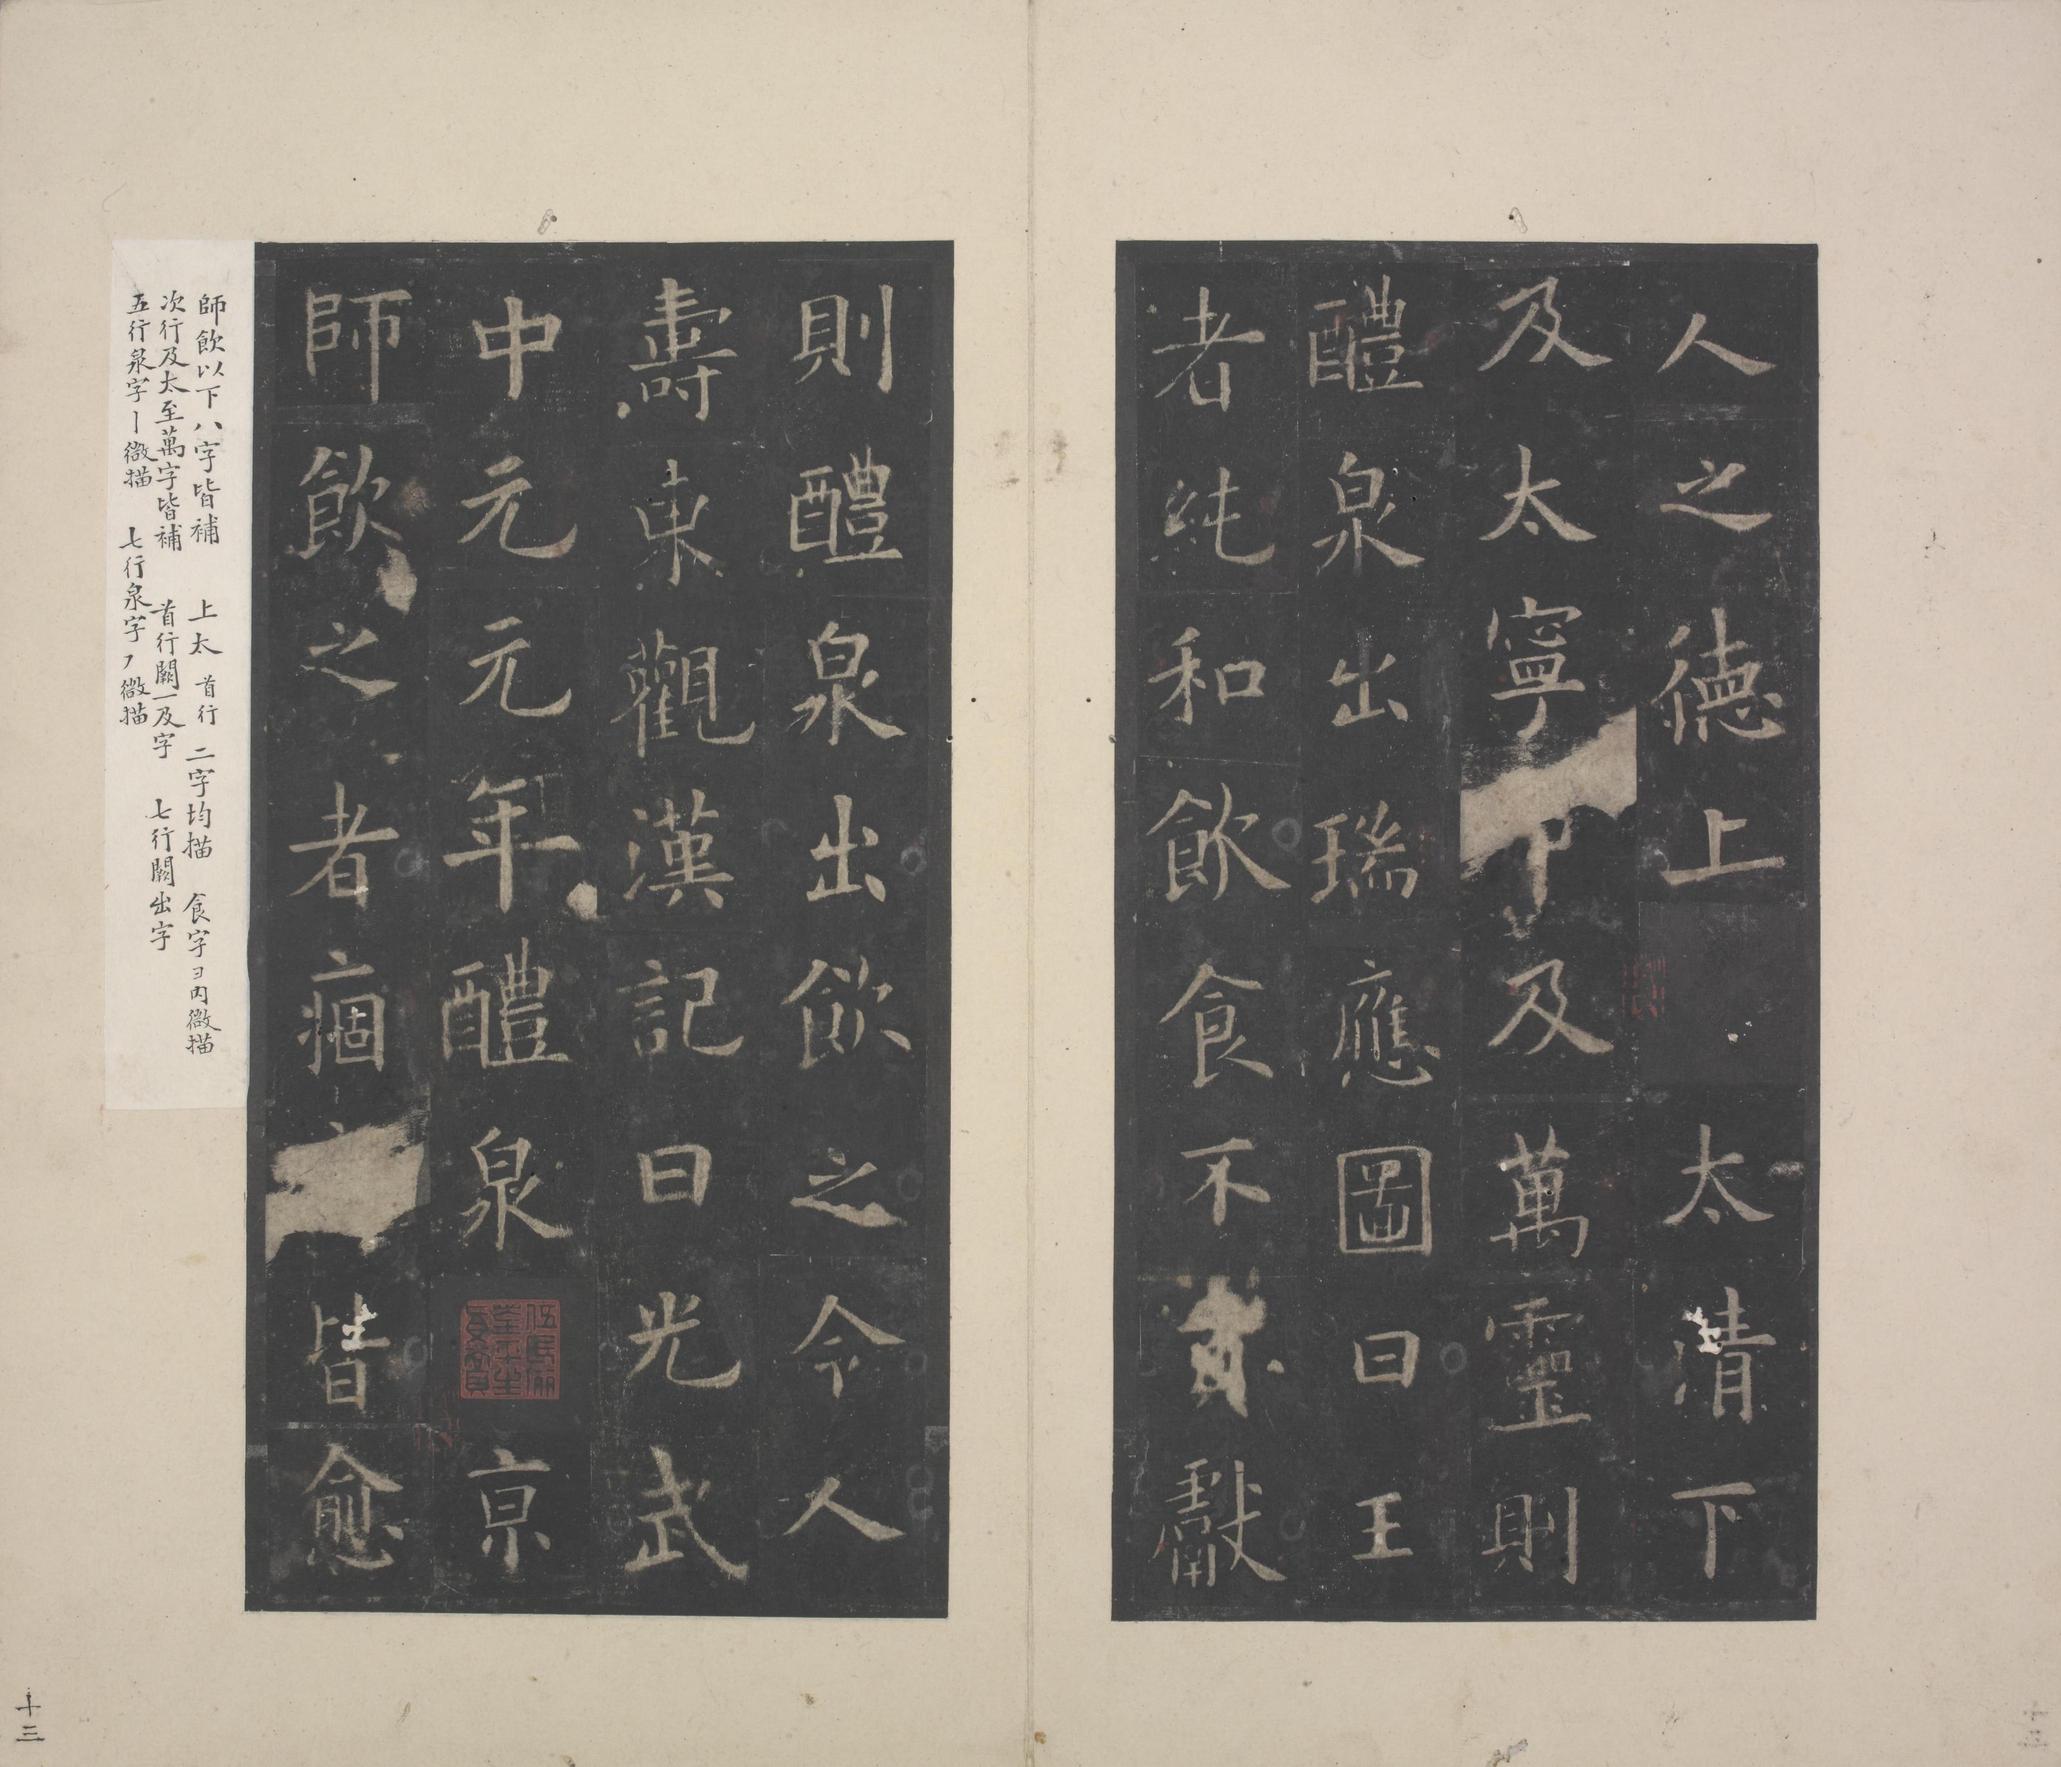 人之德上太清下
及太寧下及萬靈則
醴泉出瑞應圖曰王
者純和飲食不貢獻
則醴泉出飲之令人
壽東觀漢記曰光武
中元元年醴泉京
師飲之者痼皆愈
師飲以下八字皆補 上太 首行 二字均描 食字ヨ內微描
次行及太至萬字皆補 首行闕一及字 七行闕出字
五行泉字丨微描 七行泉字丿微描
十三